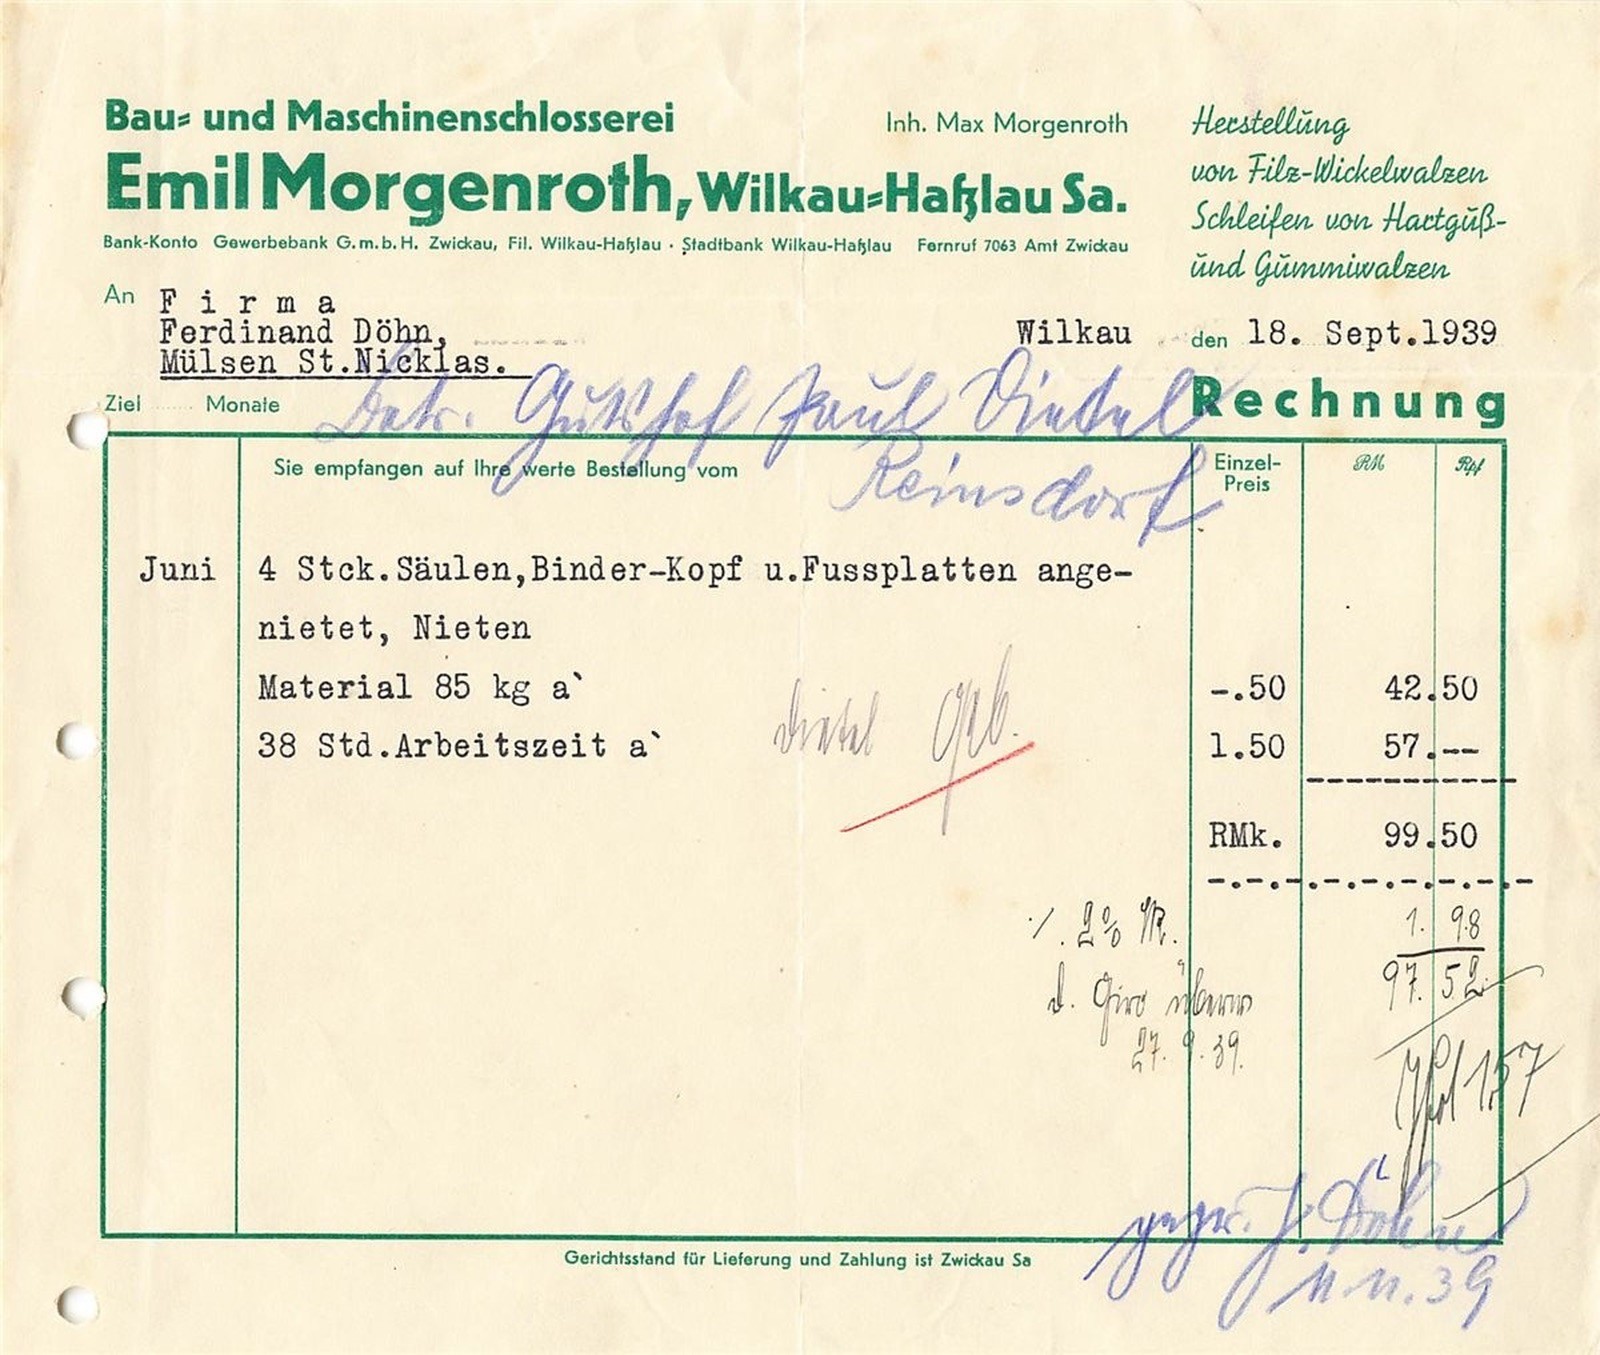 Bau- und Maschinenschlosserei
Inh. Max Morgenroth
Emil Morgenroth, Wilkau-Haßlau Sa.
Bank-Konto Gewerbebank G.m.b.H. Zwickau, Fil. Wilkau-Haßlau · Stadtbank Wilkau-Haßlau Fernruf 7063 Amt Zwickau
Herstellung
von Filz-Wickelwalzen
Schleifen von Hartguß-
und Gummiwalzen
An Firma
Ferdinand Döhn,
Mülsen St.Nicklas.
Wilkau den 18. Sept.1939
Ziel ...... Monate
Rechnung
Betr. Gutshof Paul Dietel
Reinsdorf
Sie empfangen auf Ihre werte Bestellung vom
Einzel-
Preis
RM Rpf
Juni 4 Stck.Säulen,Binder-Kopf u.Fussplatten ange-
nietet, Nieten
Material 85 kg a` -.50 42.50
38 Std.Arbeitszeit a` 1.50 57.--
Dietel geb.
RMk. 99.50
·/. 2% 1. 98
97. 52
d. Giro überw
27. 9. 39.
157
gepr. J. Döhn
11.11.39
Gerichtsstand für Lieferung und Zahlung ist Zwickau Sa